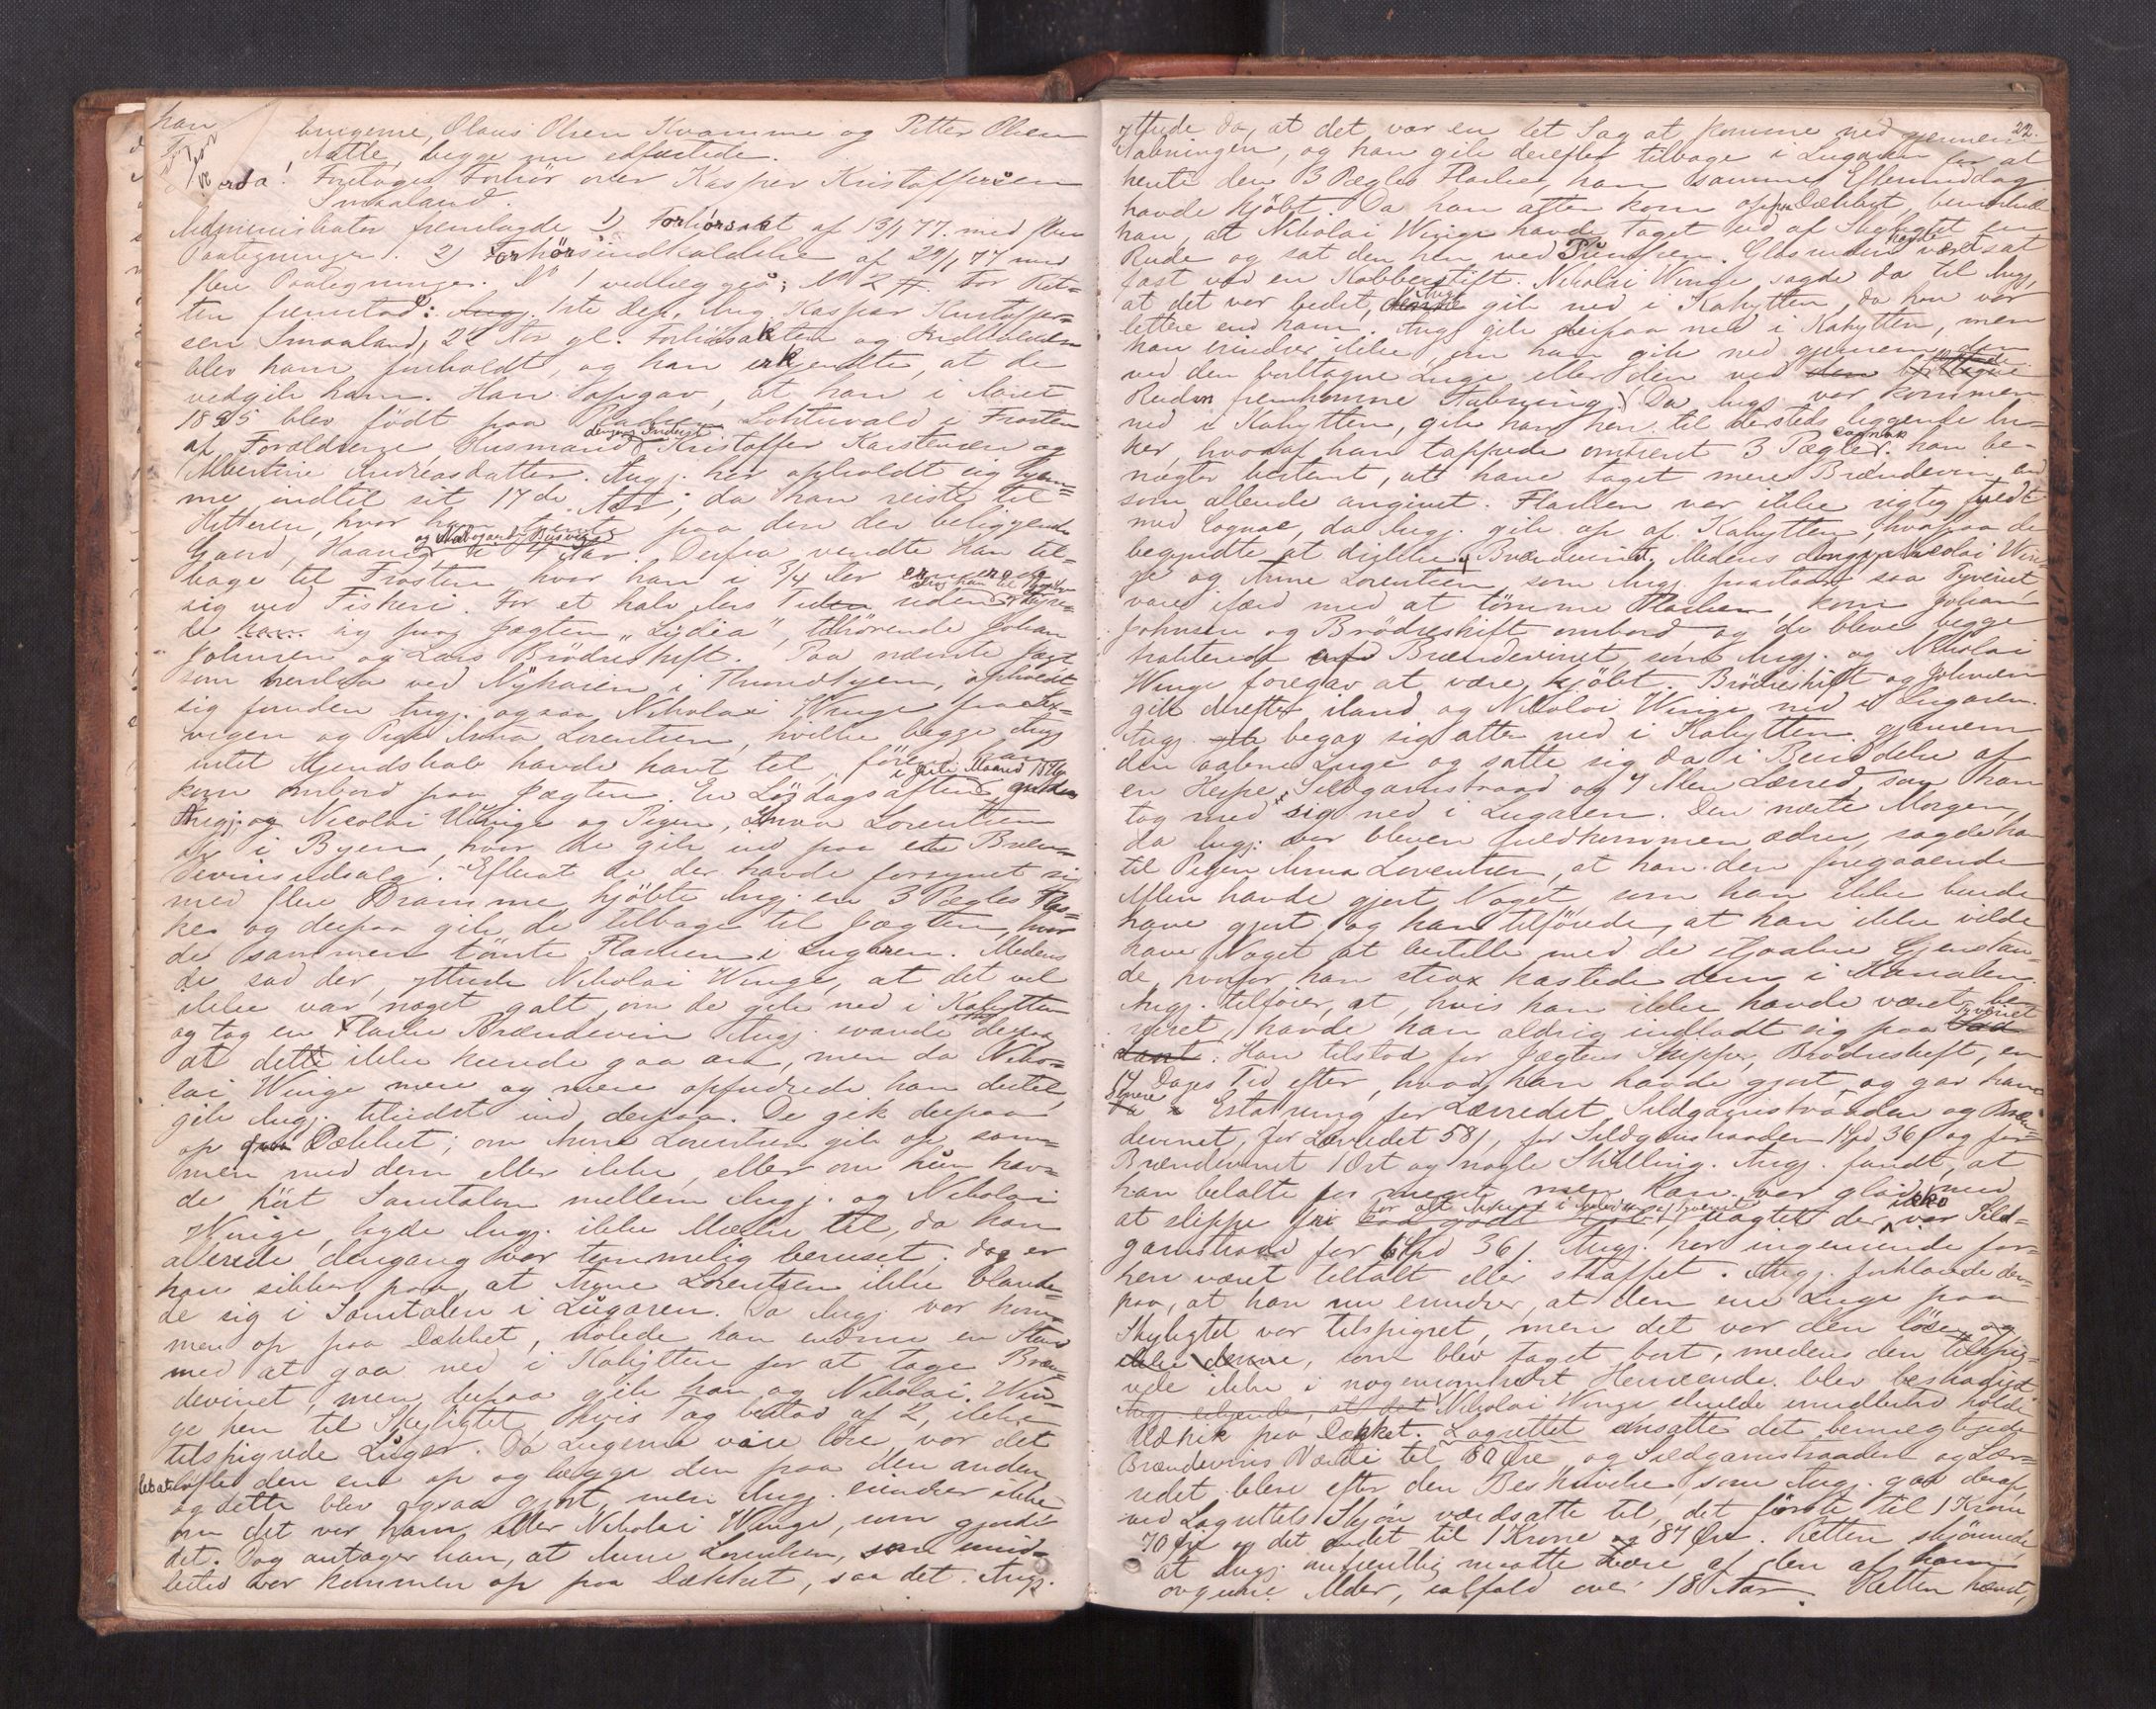 han
brugerne, Olaus Olsen Kvamme og Petter Olsen
Aatte, begge nu edfæstede.
Foretoges Forhör over Kasper Kristoffersen
Smaaland.
Administrator fremlagde 1) Forhörsakt af 13/1 77. med flere
Paategninger. 2) Forhörsindkaldelse af 29/1 77 med
flere Paategninger. No 1 vedlægges; No 2 ff. For Ret-
ten fremstod: 1ste Dep. Ang. Kasper Kristoffer-
sen Smaaland, 22 Aar gl. Forhörsakten og Indkaldelsen
blev ham foreholdt, og han erkjendte, at de
vedgik ham. Han opgav, at han i Aaret
1855 blev födt paa Pladsen i Frosten
af Forældrene, Husmand Kristoffer Karstensen og
Albertine Andreasdatter. Angj. har opholdt sig hjem-
me indtil sit 17de Aar, da han reiste til
Hitteren, hvor han tjente paa den der beliggende
Gaard, i 4 Aar. Derfra vendte han til-
bage til Frosten hvor han i 3/4 Aar ernærede
sig ved Fiskeri. For et halv Aars Tid siden
de sig paa Jægten "Lydia", tilhörende Johan
Johnsen og Lars Brödreskift. Paa nævnte Jægt
som henlaa ved Nyhavn i Throndhjem, opholdt
sig foruden Angj. ogsaa Nikolai Winge fra Lex-
vigen og Pige Anna Lorentsen, hvilke begge Angj.
intet Kjendskab havde havt til för han
kom ombord paa Jægten. En Lördagsaften i Juli Maaned 1876 gik den
Angj. og Nicolai Winge og Pigen, Anna Lorentsen
op i Byen, hvor de gik ind paa et Bræn-
devinsudsalg. Efterat de der havde forsynet sig
med flere Dramme kjöbte Angj. en 3 Pægles Flas-
ke og derpaa gik de tilbage til Jægten, hvor
de sammen tömte Flasken i Lugaren. Medens
de sad der, yttrede Nikolai Winge, at det vel
ikke var noget galt, om de gik ned i Kahytten
og tog en Flaske Brændevin. Angj. svarede derpaa
at dette ikke kunde gaa an, men da Niko-
lai Winge mere og mere opfordrede ham dertil,
gik Angj. tilsidst ind derpaa. De gik derpaa
op paa Dækket; om Anna Lorentsen gik op sam-
men med dem eller ikke, eller om hun hav-
de hört Samtalen mellem Angj. og Nikolai
Winge, lagde Angj. ikke Mærke til, da han
allerede dengang var temmelig beruset; dog er
han sikker paa, at Anna Lorentsen ikke blande-
de sig i Samtalen i Lugaren. Da Angj. var kom-
men op paa Dækket, nölede han endnu en Stund
med at gaa ned i Kahytten for at tage Bræn-
devinet, men derpaa gik han og Nikolai Win-
ge hen til Skylightet, hvis Tag bestod af 2, ikke
tilspigrede Luger. Da Lugerne vare löse, var det
let at löfte den ene op og lægge den paa den anden,
og dette blev ogsaa gjort, men Angj. erindrer ikke
om det var ham eller Nikolai Winge, som gjorde
det. Dog antager han, at Anna Lorentsen, som imid-
lertid var kommen op paa Dækket, saa det. Angj.
22.
yttrede da, at det var en let Sag at komme ned gjennem
Aabningen, og han gik derefter tilbage i Lugaren for at
hente den 3 Pægles Flasken, han samme Eftermiddag
havde kjöbt. Da han atter kom op paa Dækket, bemærkede
han, at Nikolai Winge havde taget ud af Skylightet en
Rude og sat den hen ved Pumpen. Glasruden havde været sat
fast ved en Kobberstift. Nikolai Winge sagde da til Angj.,
at det var bedst, Angj. gik ned i Kahytten, da han var
lettere end ham. Angj. gik derpaa ned i Kahytten, men
han erindrer ikke, om han gik ned gjennem den
ved den borttagne Luge eller den ved den borttagne
Ruden fremkomne Aabning. Da Angj. var kommen
ned i Kahytten, gik han hen til dersteds liggende An-
ker, hvoraf han tappede omtrent 3 Pægle Cognac. Han be-
nægter bestemt, at have taget mere Brændevin, end
som allerede angivet. Flasken var ikke rigtig fyldt
med Cognac, da Angj. gik op af Kahytten, hvorpaa de
begyndte at drikke Brændevinet. Medens Angj., Nicolai Win-
ge og Anna Lorentsen, som Angj. paastaar, saa Tyveriet,
vare ifærd med at tömme Flasken, kom Johan
Johnsen og Brödreskift ombord, og de bleve begge
trakterede med Brændevinet, som Angj. og Nikolai
Winge foregav at være kjöbt. Brödreskift og Johnsen
gik derefter iland og Nikolai Winge ned i Lugaren.
Angj. begav sig atter ned i Kahytten gjennem
den aabne Luge og satte sig da i Besiddelse af
en Hespe Sildgarnstraad og 7 Alen Lærred, som han
tog med sig ned i Lugaren. Den næste Morgen,
da Angj. var bleven fuldkommen ædru, sagde han
til Pigen Anna Lorentsen, at han den foregaaende
Aften havde gjort Noget, som han ikke burde
have gjort, og han tilföiede, at han ikke vilde
have Noget at bestille med de stjaalne Gjenstan-
de, hvorfor han strax kastede dem i Kanalen.
Angj. tilföier, at, hvis han ikke havde været be-
ruset, havde han aldrig indladt sig paa Tyveriet.
Han tilstod for Jægtens Skipper, Brödreskift, en
14 Dages Tid efter, hvad han havde gjort og gav ham
senere Erstatning for Lærredet, Sildgarnstraaden og Bræn-
devinet, for Lærredet 58/, for Sildgarnstraaden 1 Spd 36/ og for
Brændevinet 1 Ort og nogle Skilling. Angj. fandt, at
han betalte for meget, men han var glad ved
at slippe fri for alt, uagtet der ikke var Sild-
garnstraad for 1 Spd 36/. Angj. har ingensinde for-
hen været tiltalt eller straffet. Angj. forklarede der-
paa, at han nu erindrer, at den ene Luge paa
Skylightet var tilspigret, men det var den löse og
ikke denne, som blev taget bort, medens den tilspig-
rede ikke i nogensomhelst Henseende blev beskadiget.
Nikolai Winge skulde imidlertid holde
Udkik paa Dækket. Lagrettet ansatte det bemægtigede
Brændevins Værdi til 80 Öre og Sildgarnstraaden og Lær-
redet bleve efter den Beskrivelse, som Angj. gav deraf
ved Lagrettets Skjön værdsatte til, det förste til 1 Krone
70 Öre og det andet til 1 Krone og 87 Öre. Retten skjönnede,
at Angj. anseentlig maatte være af den af ham
opgivne Alder, ialfald over 18 Aar. Retten hævet,